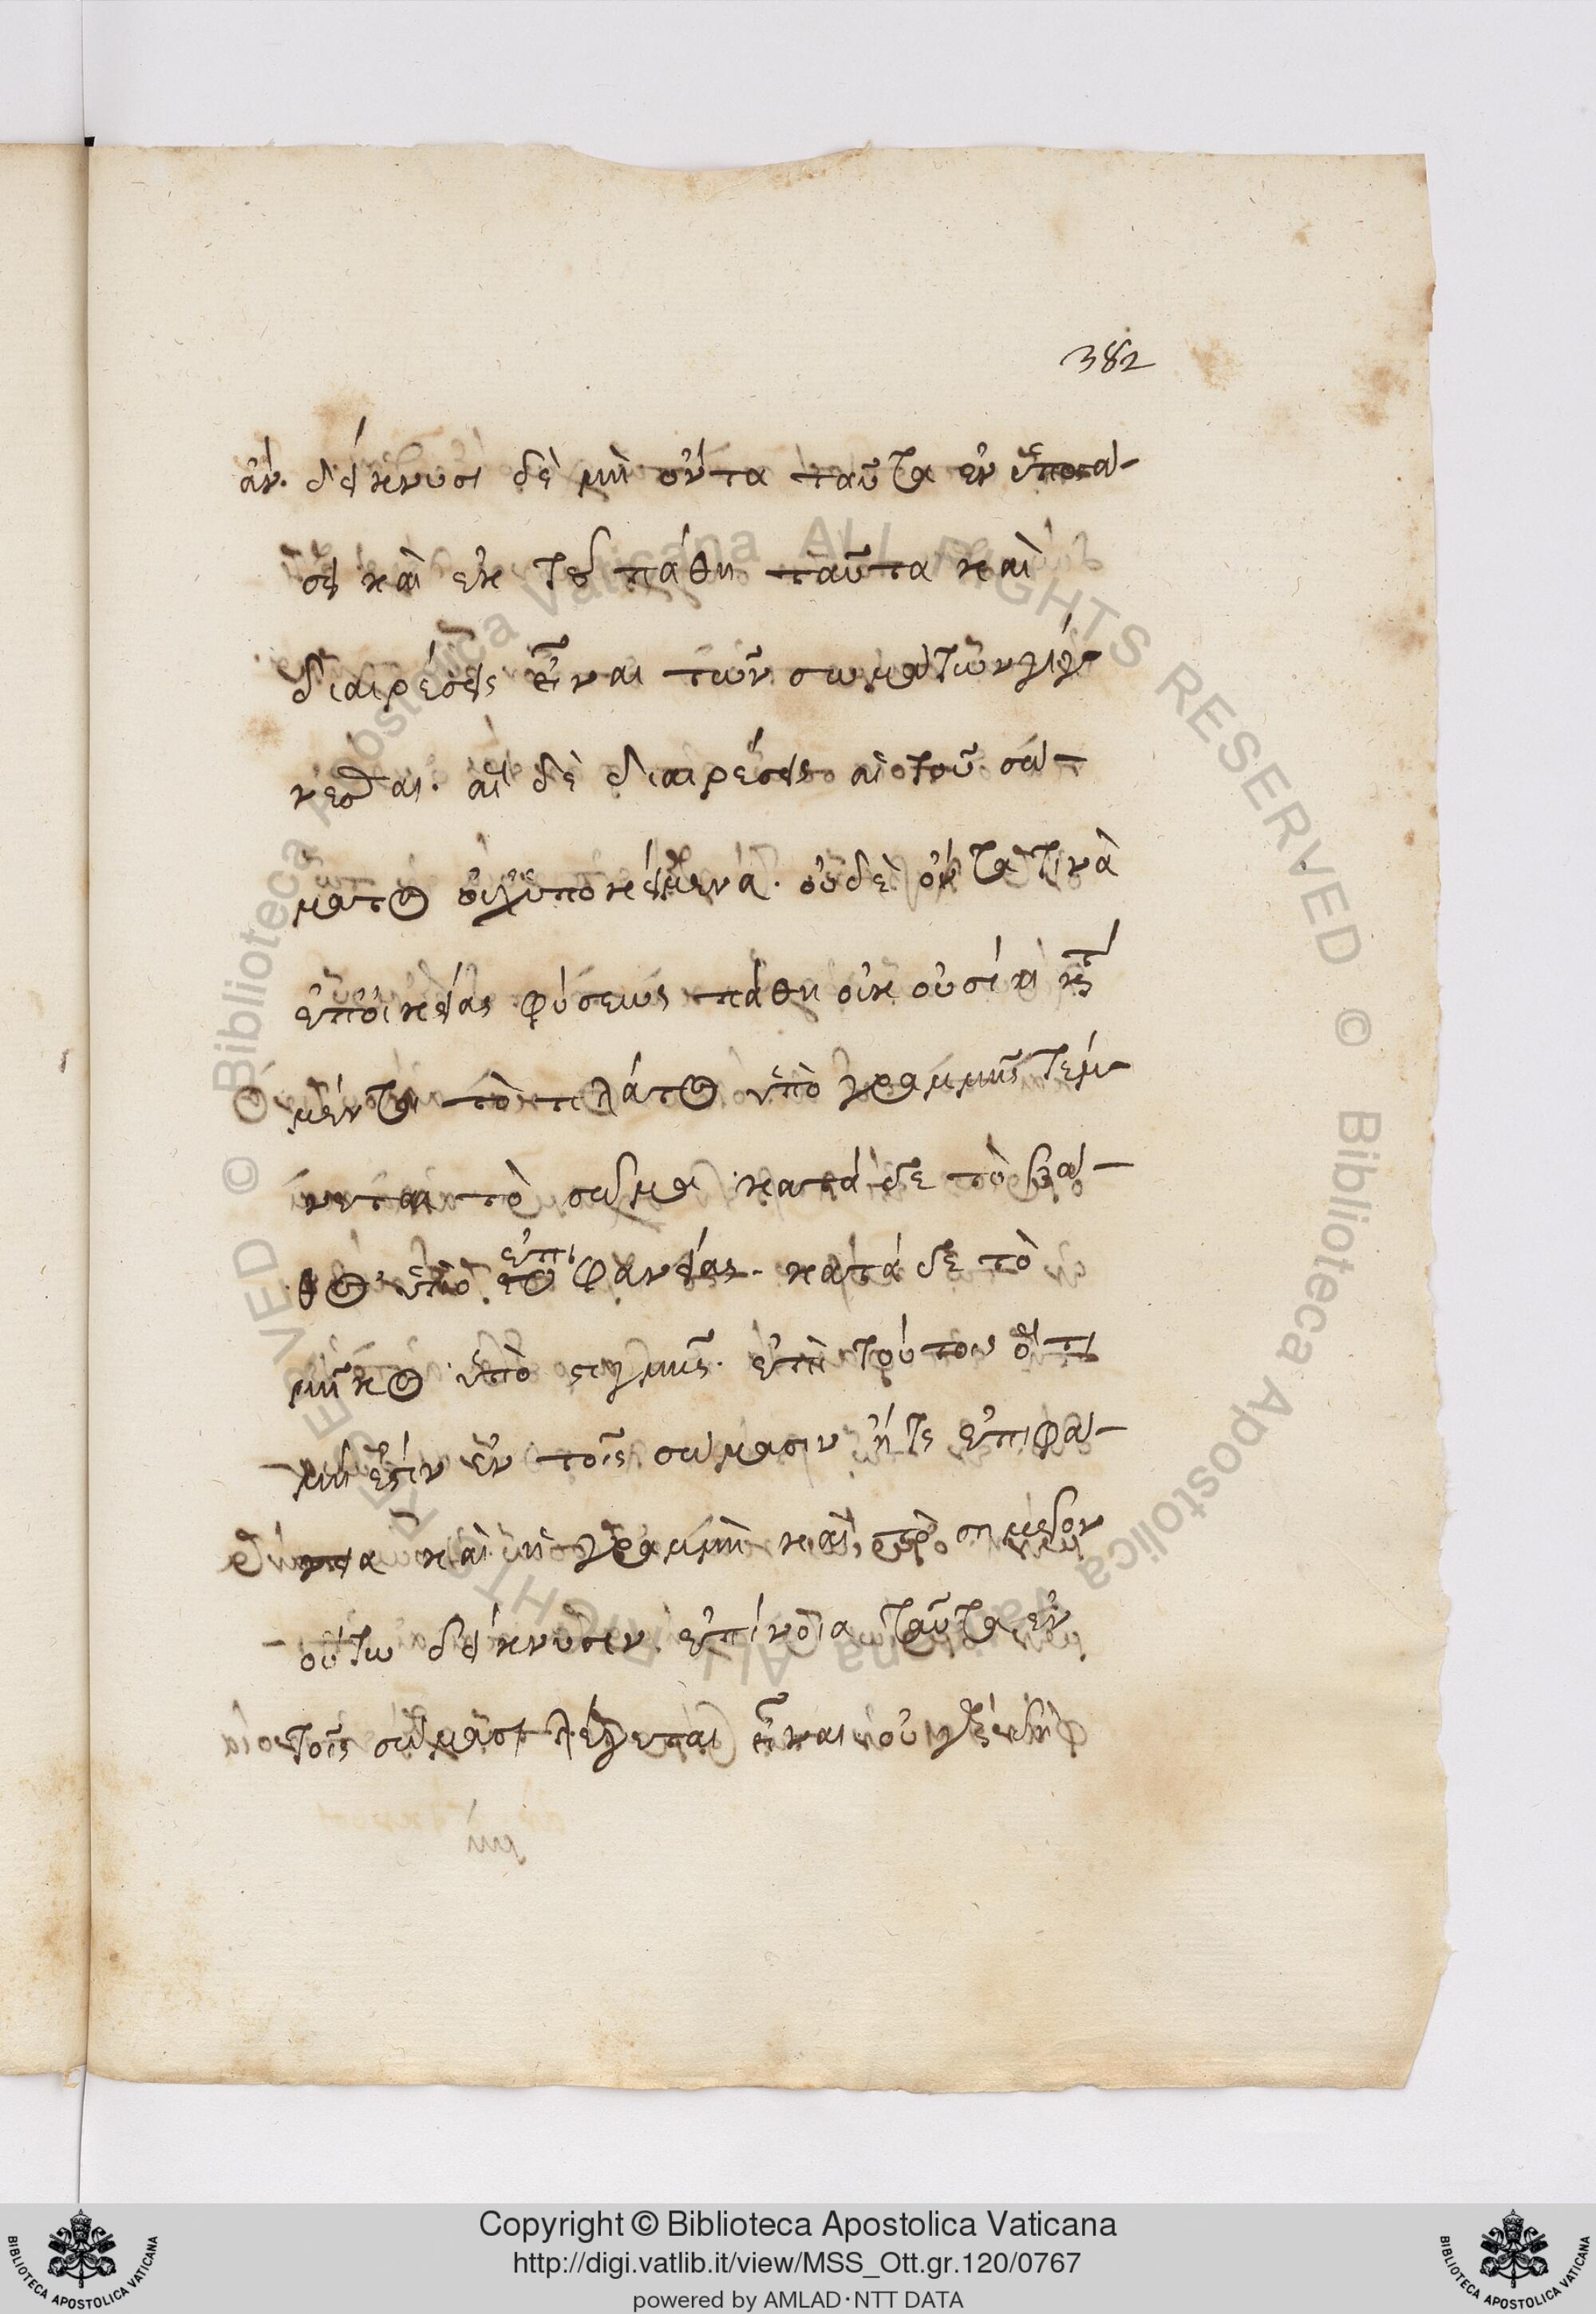 382
ἀν. δείκνυσι δὲ μὴ ὄντα ταῦτα ἐν ὑποστά-
σει καὶ ἐκ τοῦ πάθη ταῦτα καὶ
διαιρέσεις εἶναι τῶν σωμάτων γίγ-
νεσθαι. αἱ δὲ διαιρέσεις αἱ τοῦ σώ-
ματος οὐχ ὑποκείμενα. οὐδὲ ὄντα τινὰ
ἐπ' οἰκείας φύσεως πάθη οὐκ οὐσίαι κατὰ
μέντοι τὸ πλάτος ὑπὸ γραμμῆς τέμ-
νεται τὸ σῶμα κατὰ δὲ τὸ βά-
θος ὑπὸ ἐπιφανείας. κατὰ δὲ τὸ
μῆκος ὑπὸ στιγμῆς. ἐπὶ τρύτου ὅτι
μή ἐστιν ἐν τοῖς σώμασιν ἥ τε ἐπιφά-
νεια καὶ ἡ γραμμὴ καὶ τὸ σημεῖον
οὕτω δείκνυσιν. ἐπίνοια ταῦτα ἐν
τοῖς σώμασι λέγεται εἶναι οὐ
Copyright © Biblioteca Apostolica Vaticana
http://digi.vatlib.it/view/MSS_Ott.gr.120/0767
powered by AMLAD·NTT DATA
BIBLIOTECA APOSTOLICA VATICANA
BIBLIOTECA APOSTOLICA VATICANA
© Biblioteca Apostolica Vaticana ALL RIGHTS RESERVED © Biblioteca Apostolica Vaticana ALL RIGHTS RESERVED